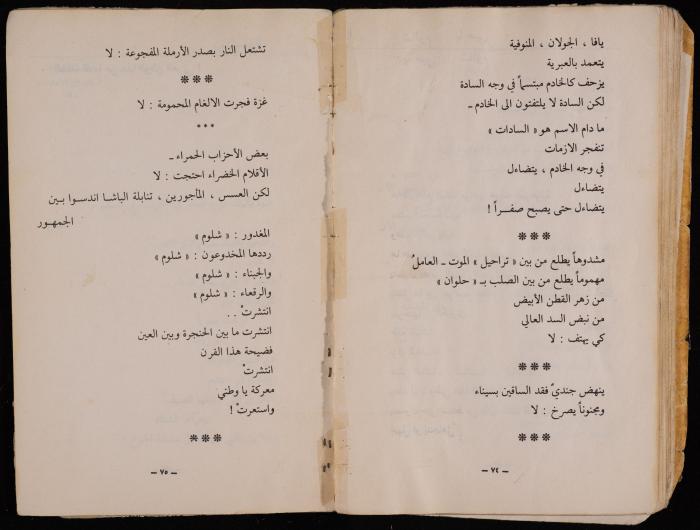 يافا ، الجولان ، المنوفية
يتعمد بالعبرية
يزحف كالخادم مبتسماً في وجه السادة
لكن السادة لا يلتفتون الى الخادم ـ
ما دام الاسم هو « السادات »
تنفجر الازمات
في وجه الخادم ، يتضاءل
يتضاءل
يتضاءل حتى يصبح صفـراً !
***
مشدوهاً يطلع من بين « تراحيل » الموت ـ العاملُ
مهموماً يطلع من بين الصلب بـ « حلوان »
من زهر القطن الأبيض
من نبض السد العالي
كي يهتف : لا
***
ينهض جنديٌ فقد الساقين بسيناء
ومجنوناً يصرخ : لا
***
– ٧٤ –
تشتعل النار بصدر الأرملة المفجوعة : لا
***
غزة فجرت الالغام المحمومة : لا
***
بعض الأحزاب الحمراء ـ
الأقلام الخضراء احتجت : لا
لكن العسس ، المأجورين ، تنابلة الباشا اندسوا بين
الجمهور
المغدور : « شلوم »
رددها المخدوعون : « شلوم »
والجبناء : « شلوم »
والرقعاء : « شلوم »
انتشرتْ . .
انتشرت ما بين الحنجرة وبين العين
فضيحة هذا القرن
انتشرتْ
معركة يا وطني
واستعرتْ !
***
– ٧٥ –